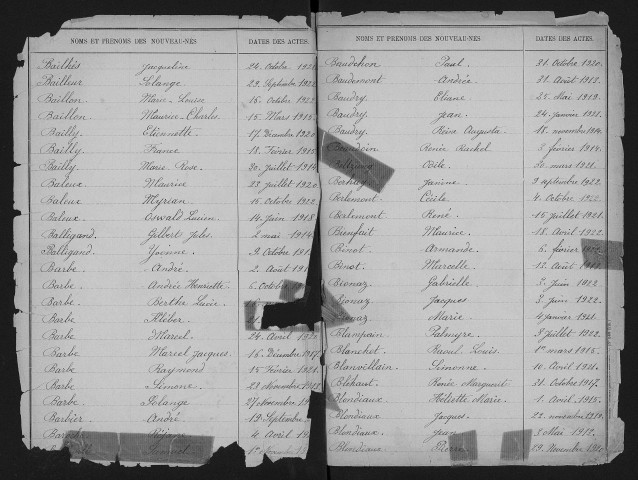 NOMS ET PRÉNOMS DES NOUVEAU-NÉS DATES DES ACTES.
Bailhès Jacqueline 24 Octobre
Bailleur Solange 29 Septembre 1922
Baillon Marie-Louise 15 Octobre 1922
Baillon Maurice-Charles. 15 Mars 1915
Bailly. Etiennette. 17 Décembre 1920
Bailly. France 18 Février 1915
Bailly. Marie-Rose. 20 Juillet 1914
Baleux Maurice 23 Juillet 1920
Baleux Myrian 16 Octobre 1922
Baleux. Oswald Lucien. 14 Juin 1918
Balligand Gilbert Jules. 2 mai 1914
Balligand Yvonne 9 Octobre
Barbe. André. 2 Août
Barbe Andrée Henriette 6 Octobre
Barbe Berthe Lucie.
Barbe Kléber
Barbe Marcel 24 Avril
Barbe Marcel Jacques. 16 Décembre 1917
Barbe Raymond 15 Février 1921
Barbe Simone. 28 Novembre
Barbe Solange 27 Novembre
Barbier André 19 Septembre
4 Avril
1er Novembre
NOMS ET PRÉNOMS DES NOUVEAU-NÉS. DATES DES ACTES.
Baudchon Paul. 31 Octobre 1920
Baudemont Andrée 21 Août 1912.
Baudry Eliane 25 Mai 1919.
Baudry Jean. 24 Janvier 1921.
Baudry Reine Augusta. 18 novembre 1914
Baudoin Renée Rachel 3 février 1914.
Odile. 30 mars 1921.
Janine 9 septembre 1922.
Berlemont Cécile. 4 Octobre 1922
Berlemont René. 15 Juillet 1921.
Bienfait Maurice. 18 Août 1922.
Binot Armande. 6 février
Binot. Marcelle. 15 Août
Bionaz Gabrielle 3 Juin 1922
Bionaz Jacques 3 Juin 1922.
Marie. 4 janvier 1921.
Blampain Palmyre. 8 Juillet 1922.
Blanchet Raoul Louis. 1er mars 1915.
Blanvillain Simonne. 10 Avril 1921.
Bléhaut Renée Marguerit 31 Octobre 1917.
Blondiaux Juliette Marie. 1 Avril 1915.
Blondiaux Jacques. 22 novembre
Blondiaux. Jean 3 Mai 1912.
Blondiaux Pierre 29 Novembre